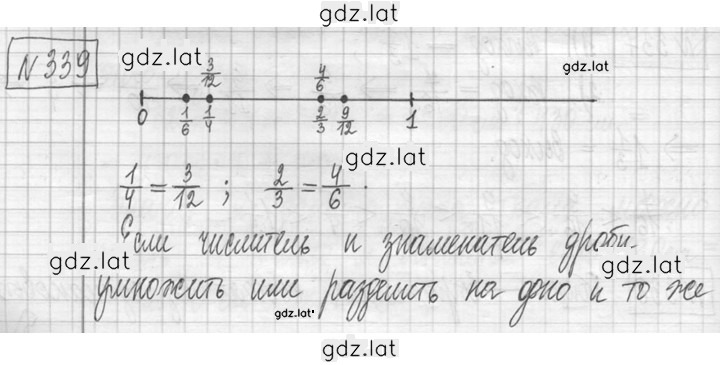 gdz.lat
N 339
gdz.lat
3/12 4/6
gdz.lat
0 1/6 1/4 2/3 9/12 1
gdz.lat
1/4 = 3/12 ; 2/3 = 4/6 .
Если числитель и знаменатель дроби
gdz.lat gdz.lat
умножить или разделить на одно и то же
gdz.lat
gdz.lat